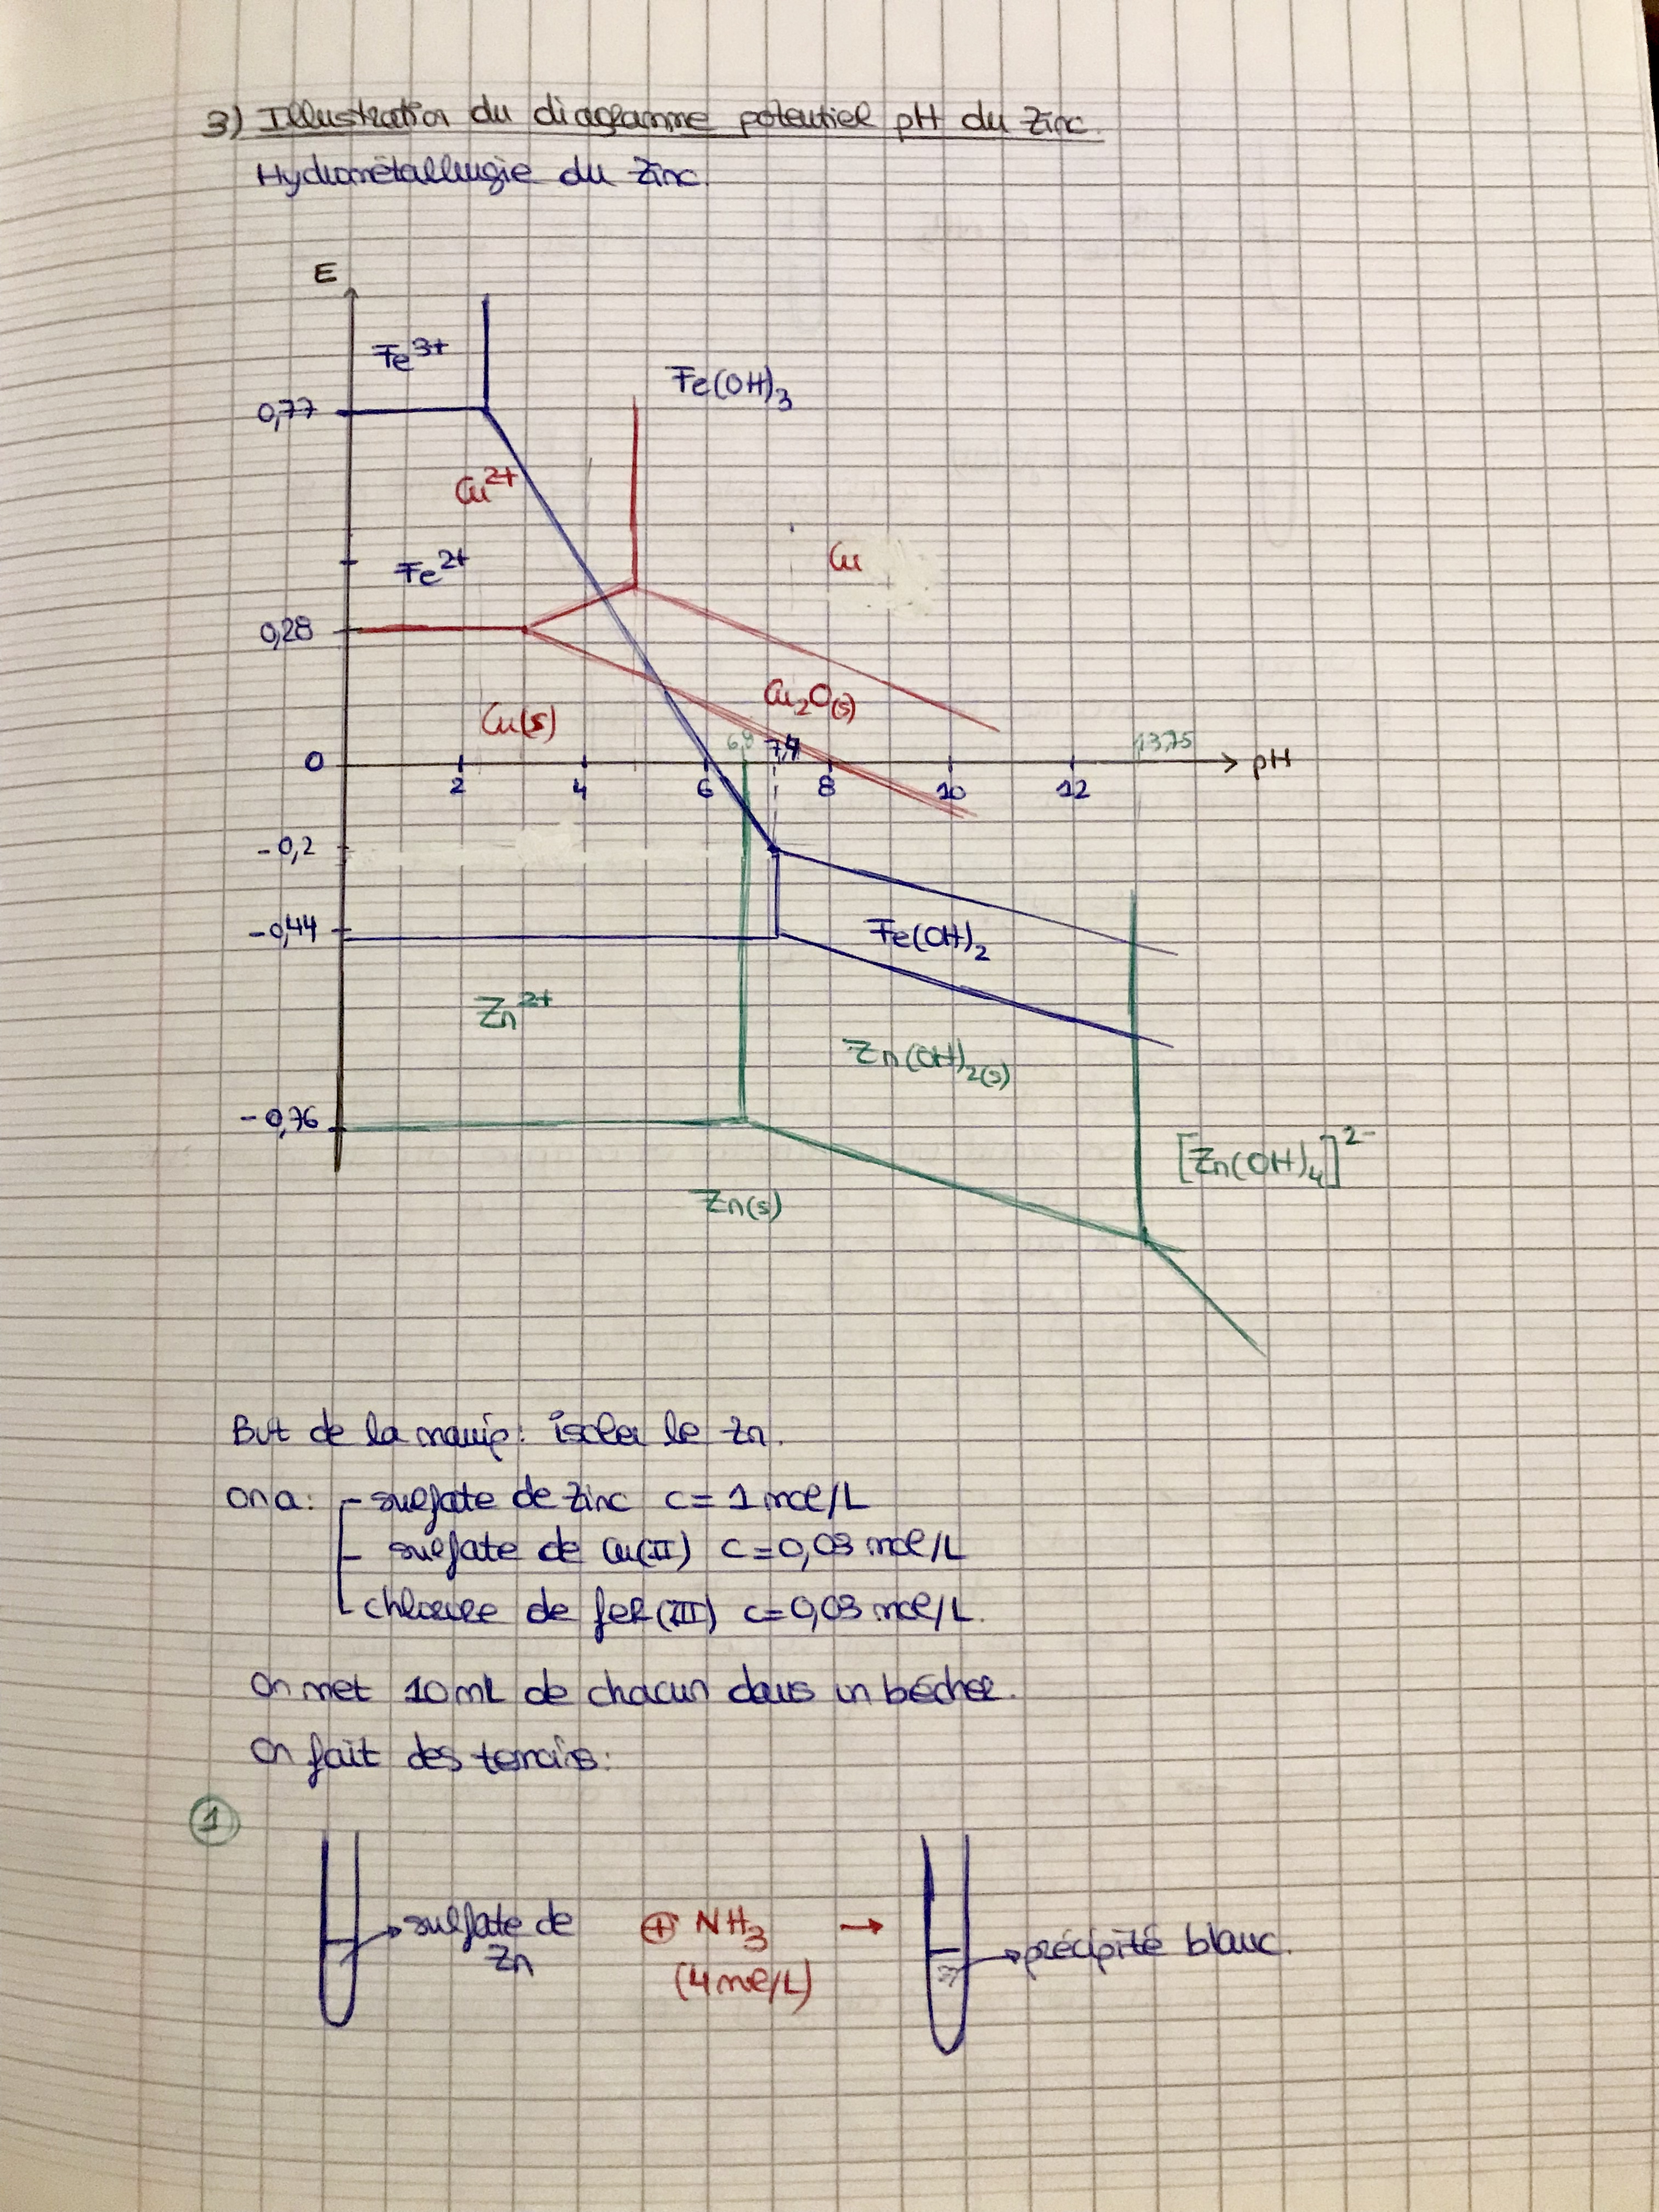 3) Illustration du diagramme potentiel pH du Zinc.
Hydrométallurgie du Zinc.
E
Fe3+
Fe(OH)3
0,77
Cu2+
Cu
Fe2+
0,28
Cu2O(s)
Cu(s)
6,8 7,4 13,75
0 2 4 6 8 10 12 pH
-0,2
-0,44
Fe(OH)2
Zn2+
Zn(OH)2(s)
-0,76
[Zn(OH)4]2-
Zn(s)
But de la manip: isoler le Zn.
on a: - sulfate de zinc c= 1 mol/L
- sulfate de Cu(II) c=0,03 mol/L
- chlorure de fer(III) c=0,03 mol/L.
On met 10 mL de chacun dans un bécher.
On fait des temoins:
1
sulfate de Zn + NH3 (4 mol/L) → précipité blanc.